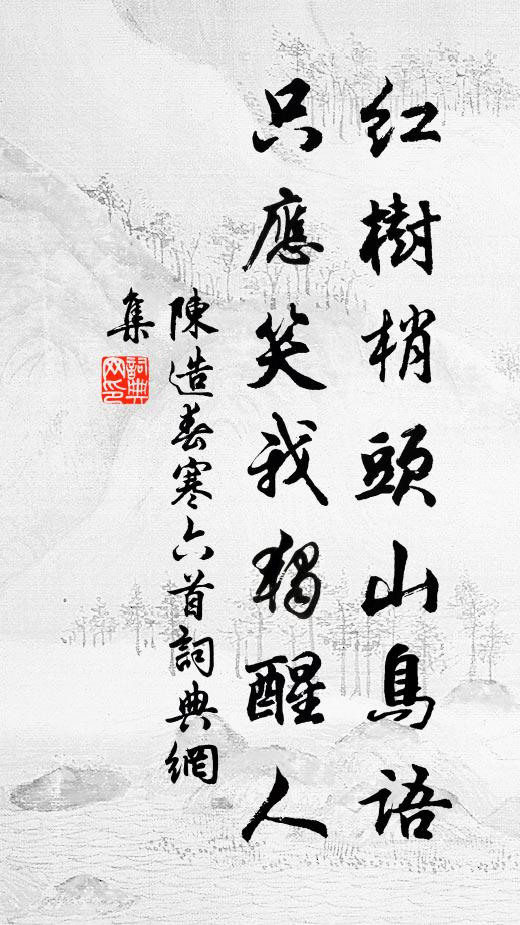 紅樹梢頭山鳥語
只應笑我獨醒人
陳造春寒六首詞典網
集
詞典網印